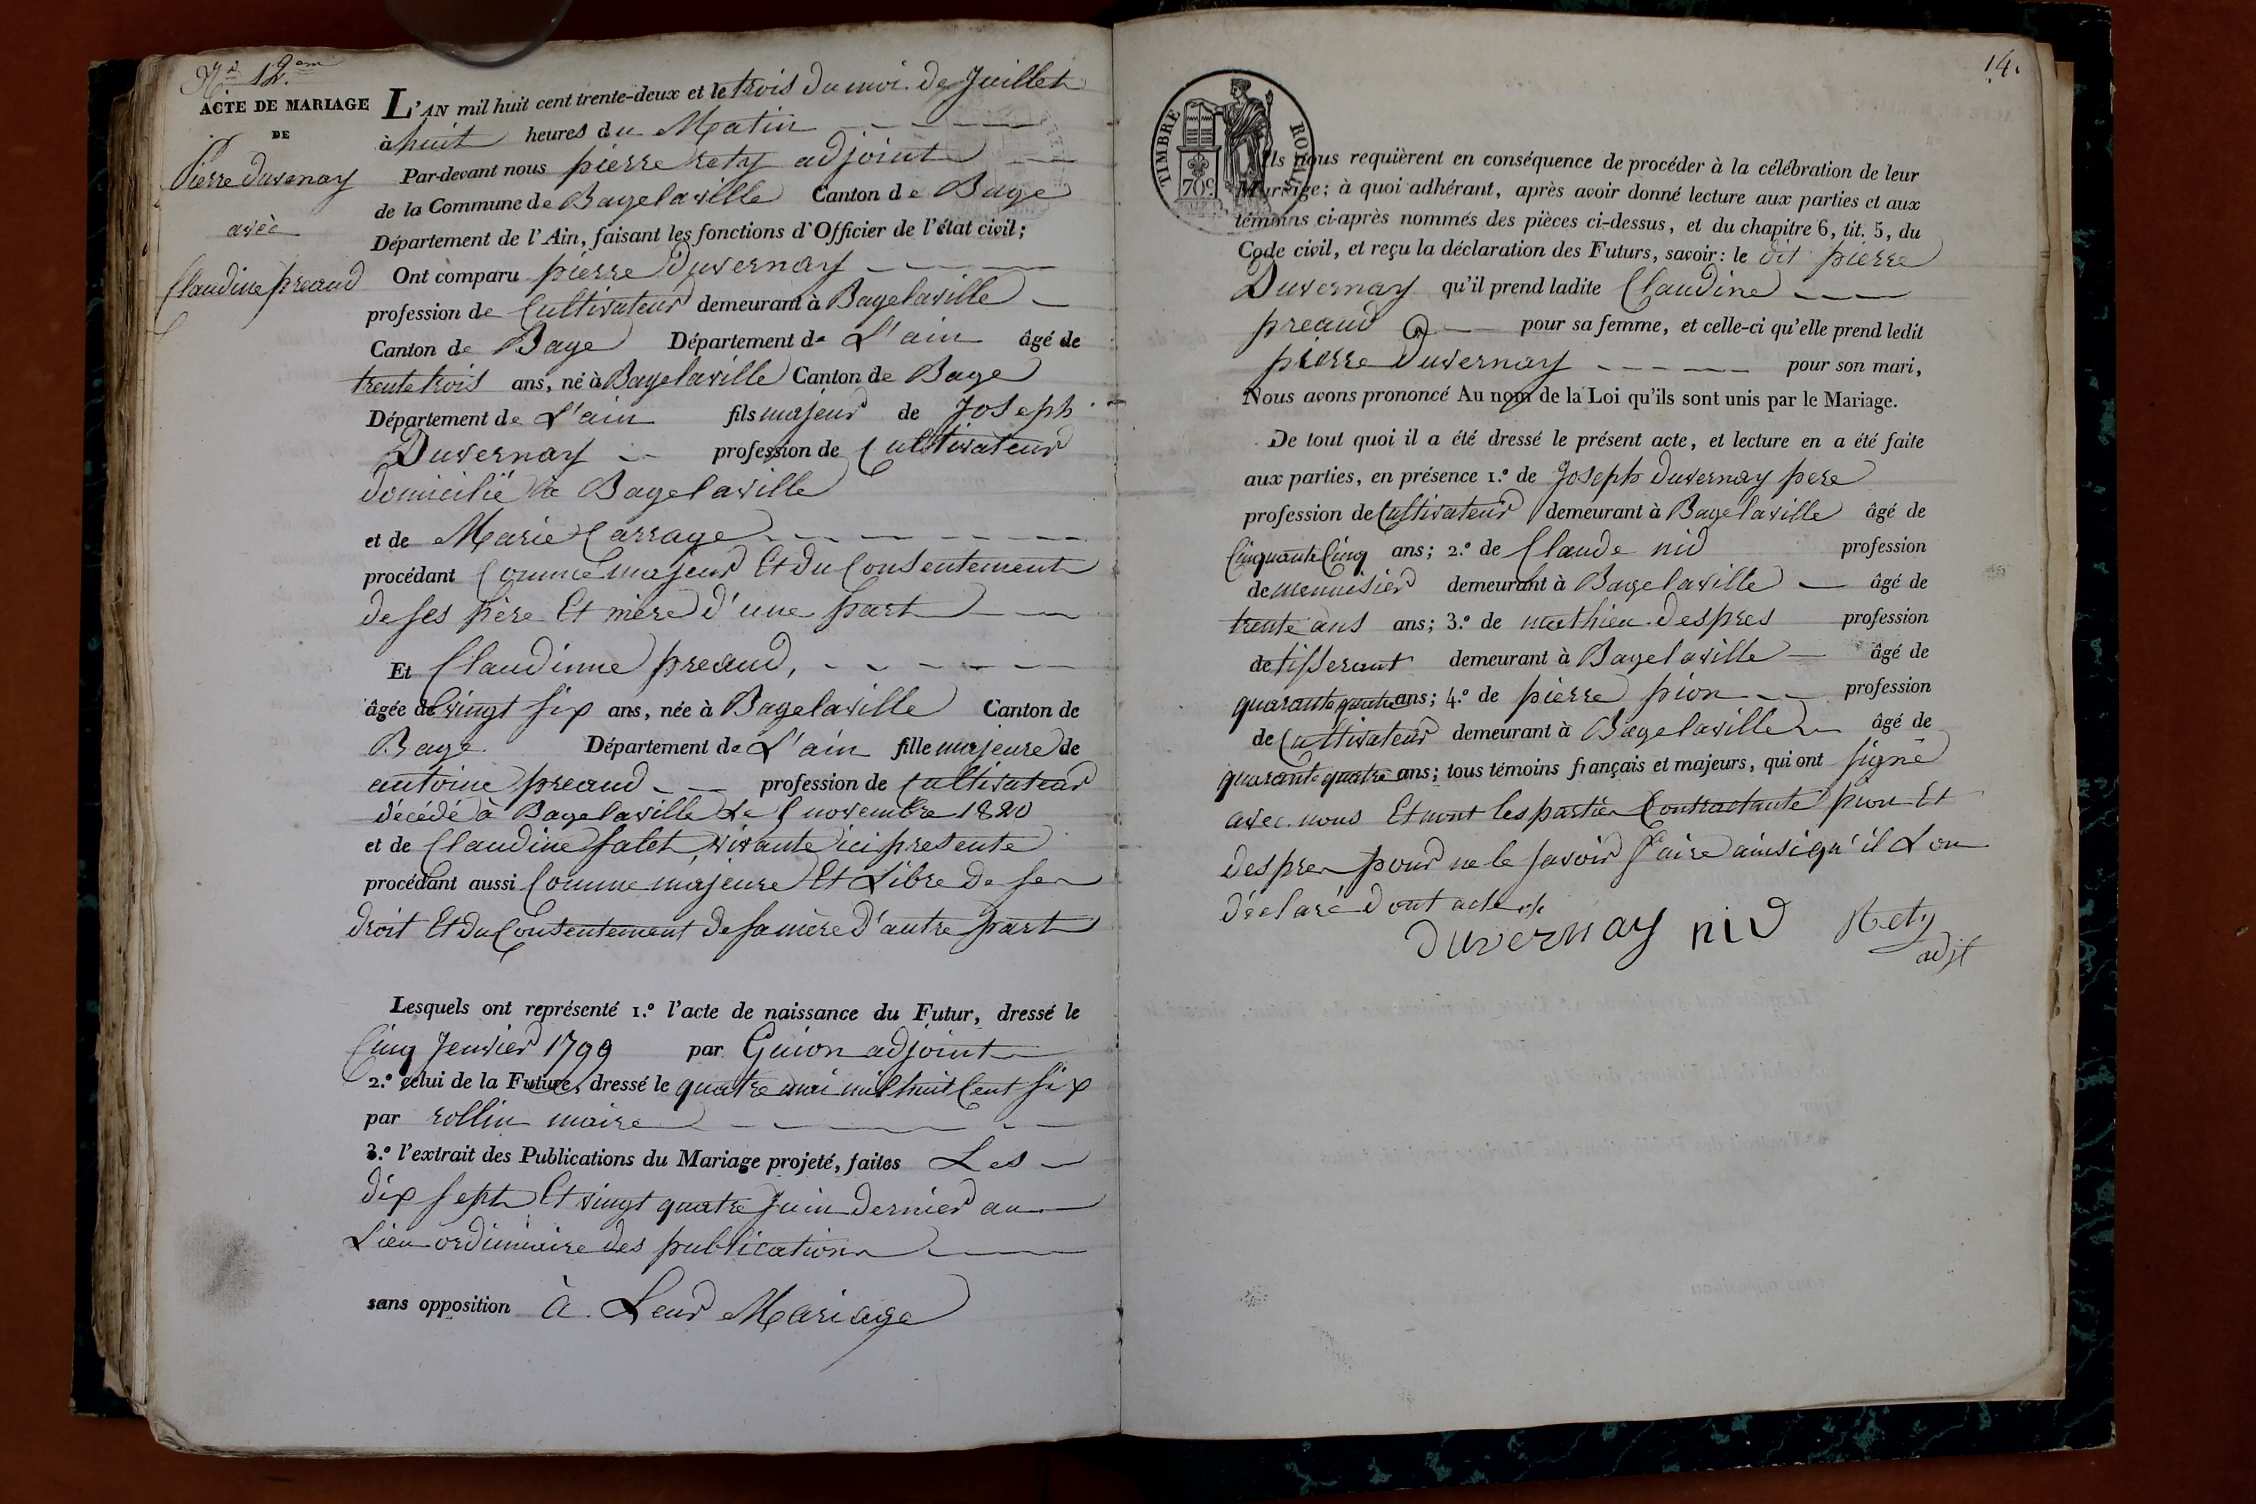 N.° 12.em
ACTE DE MARIAGE
DE
Pierre Duvernay
avec
Claudine preaud
L'AN mil huit cent trente-deux et le trois du moi de Juillet
à huit heures du Matin
Par-devant nous pierre rety adjoint
de la Commune de Bagelaville Canton de Bage
Département de l'Ain, faisant les fonctions d'Officier de l'état civil;
Ont comparu pierre Duvernay
profession de Cultivateur demeurant à Bagelaville
Canton de Bage Département de L'ain âgé de
trente trois ans, né à Bagelaville Canton de Bage
Département de L'ain fils majeur de Joseph
Duvernay profession de Cultivateur
domicilié a Bagelaville
et de Marie Carrage
procédant Comme majeur Et du Consentement
de ses père Et mère d'une part
Et Claudinne preaud,
âgée de vingt six ans, née à Bagelaville Canton de
Bage Département de L'ain fille majeure de
antoine preaud profession de Cultivateur
décédé à Bagelaville Le 5 novembre 1820
et de Claudine falet vivante ici presente
procédant aussi Comme majeure Et Libre de ses
droit Et du Consentement de sa mère d'autre part
Lesquels ont représenté 1.° l'acte de naissance du Futur, dressé le
Cinq Jenvier 1799 par Guion adjoint
2.° celui de la Future, dressé le quatre mai mil huit Cent six
par rollin maire
3.° l'extrait des Publications du Mariage projeté, faites Les
dix sept Et vingt quatre Juin dernier au
Lieu ordinnaire des publications
sans opposition à Leur Mariage
14.
TIMBRE ROYAL
70c
Ils nous requièrent en conséquence de procéder à la célébration de leur
Marriage; à quoi adhérant, après avoir donné lecture aux parties et aux
témoins ci-après nommés des pièces ci-dessus, et du chapitre 6, tit. 5, du
Code civil, et reçu la déclaration des Futurs, savoir: le dit pierre
Duvernay qu'il prend ladite Claudine
preaud pour sa femme, et celle-ci qu'elle prend ledit
pierre Duvernay pour son mari,
Nous avons prononcé Au nom de la Loi qu'ils sont unis par le Mariage.
De tout quoi il a été dressé le présent acte, et lecture en a été faite
aux parties, en présence 1.° de Joseph Duvernay pere
profession de Cultivateur demeurant à Bagelaville âgé de
Cinquante Cinq ans; 2.° de Claude nid profession
de menuisier demeurant à Bagelaville âgé de
trente ans ans; 3.° de mathieu despres profession
de tisserant demeurant à Bagelaville âgé de
quarante quatre ans; 4.° de pierre pion profession
de Cultivateur demeurant à Bagelaville âgé de
quarante quatre ans; tous témoins français et majeurs, qui ont signé
avec nous Et nont les parties Contractante pion Et
despres pour ne le savoir faire ainsi qu'il L'on
déclaré dont acte
duvernay nid Rety
adjt